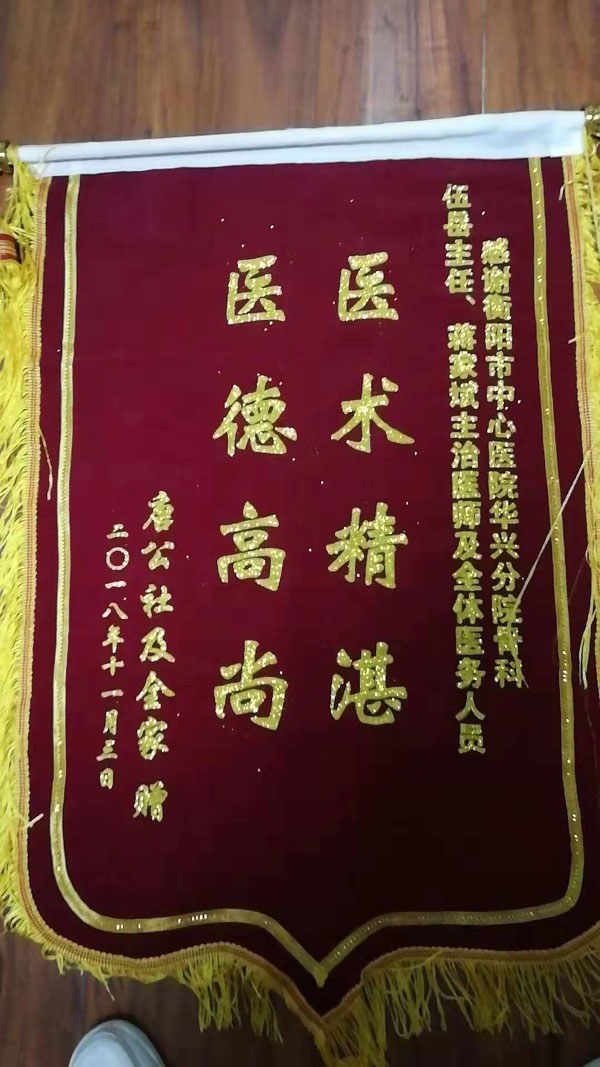 感谢衡阳市中心医院华兴分院骨科
伍岳主任、蒋家斌主治医师及全体医务人员
医术精湛
医德高尚
唐公社及全家 赠
二〇一八年十一月三日